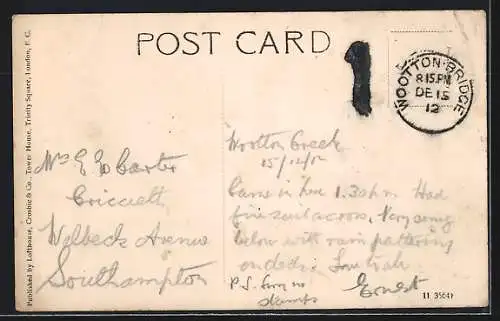 POST CARD
1
WOOTTON·BRIDGE
8 15.PM
DE 15
12
Published by Lofthouse, Crosbie & Co., Tower House, Trinity Square, London, E.C.
Mrs E Carter
Criccieth
Welbeck Avenue
Southampton
Wootton Creek
15/12/12
Came in here 1.30 pm Had
fine sail across, Very snug
below with rain pattering
on deck.
P.S. Sorry no
stamps
Ernest